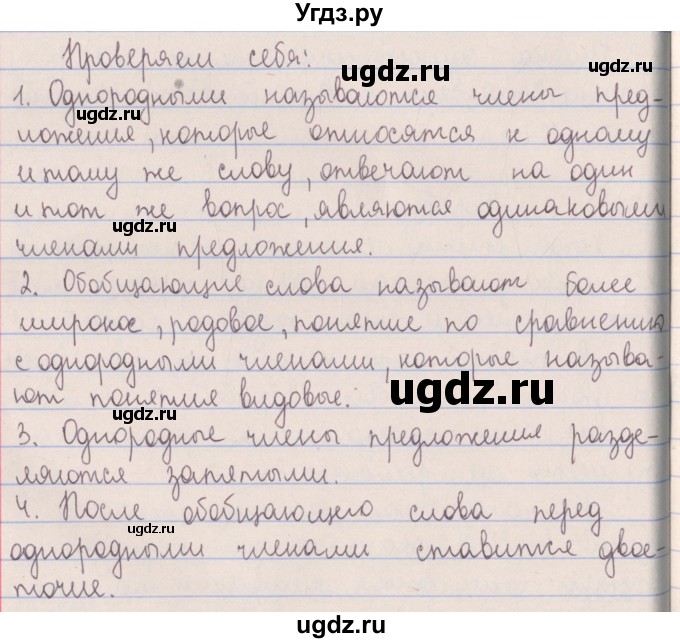 Угдз.ру
Проверяем себя:
ugdz.ru
ugdz.ru
1. Однородными называются члены пред-
ugdz.ru
ложения, которые относятся к одному
ugdz.ru
и тому же слову, отвечают на один
и тот же вопрос, являются одинаковыми
ugdz.ru
ugdz.ru
членами предложения.
2. Обобщающие слова называют более
широкое, родовое, понятие по сравнению
ugdz.ru
с однородными членами, которые называ-
ugdz.ru
ют понятия видовые.
ugdz.ru
3. Однородные члены предложения разде-
ляются запятыми.
ugdz.ru
4. После обобщающего слова перед
ugdz.ru
ugdz.ru
однородными членами ставится двое-
точие.
ugdz.ru
ugdz.ru